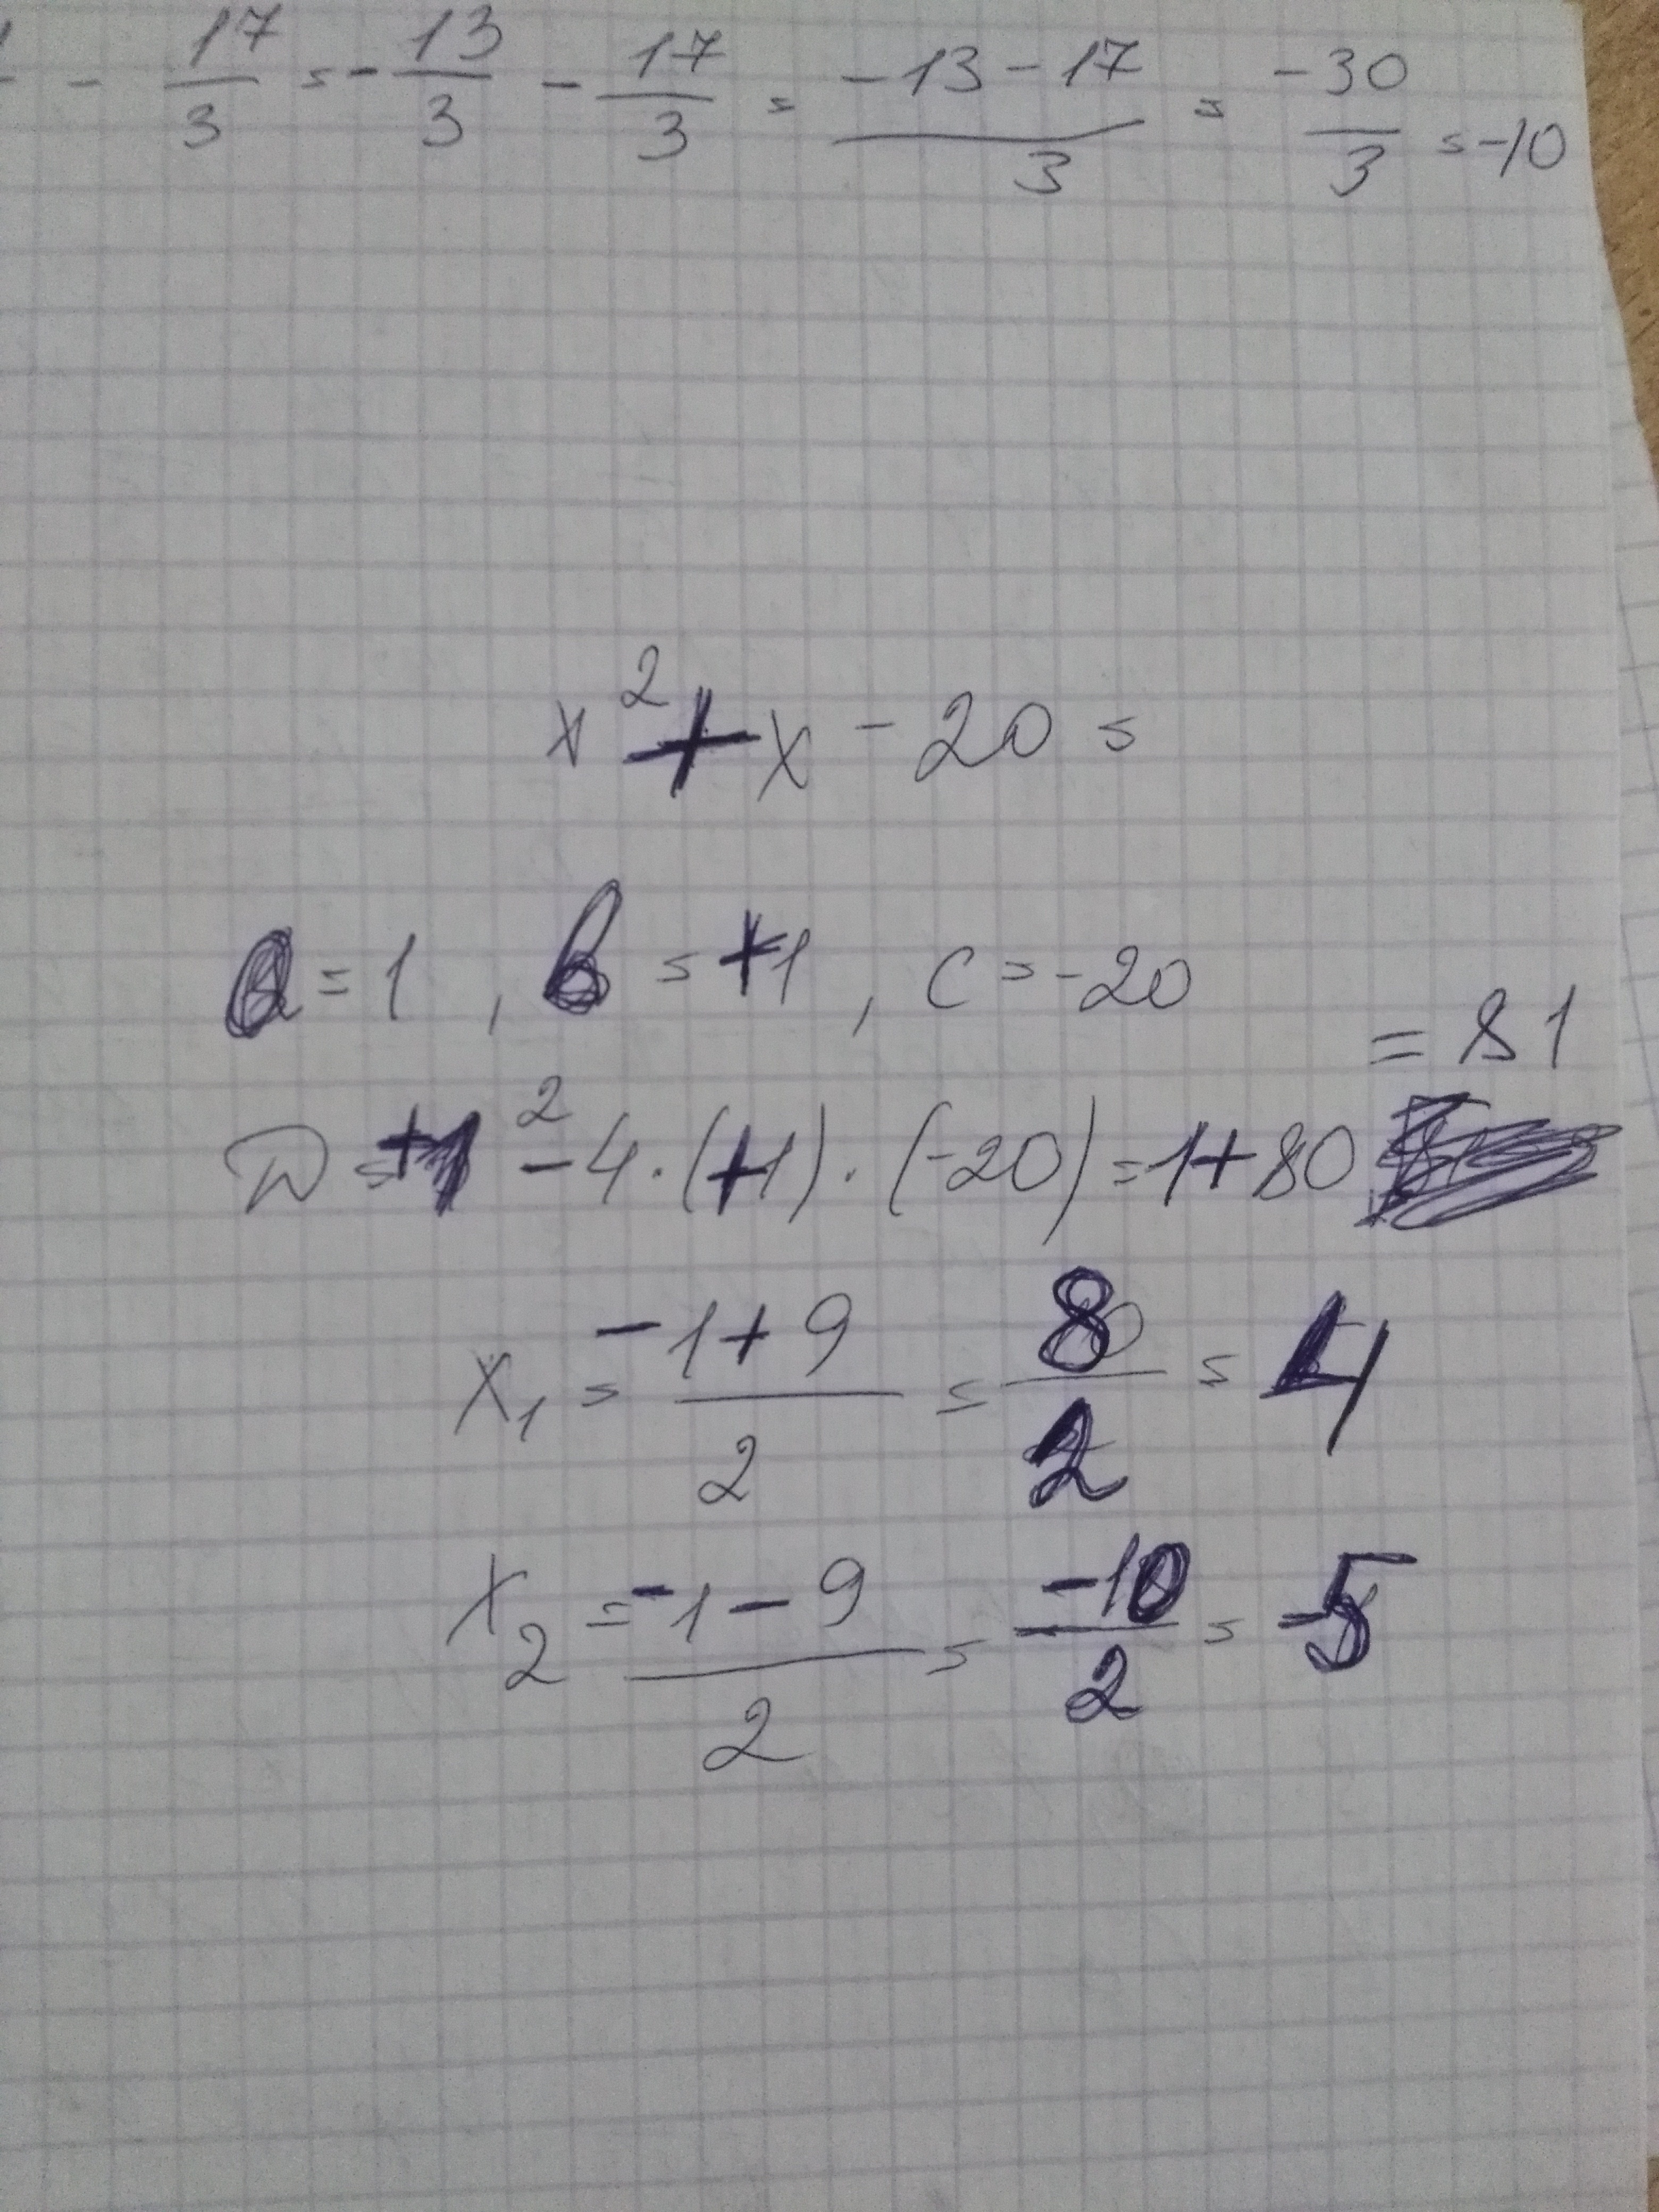 - 17/3 = - 13/3 - 17/3 = (-13-17)/3 = -30/3 = -10
x² + x - 20 =
a = 1, b = +1, c = -20
D = +1² - 4·(+1)·(-20) = 1+80 = 81
x₁ = (-1+9)/2 = 8/2 = 4
x₂ = (-1-9)/2 = -10/2 = -5